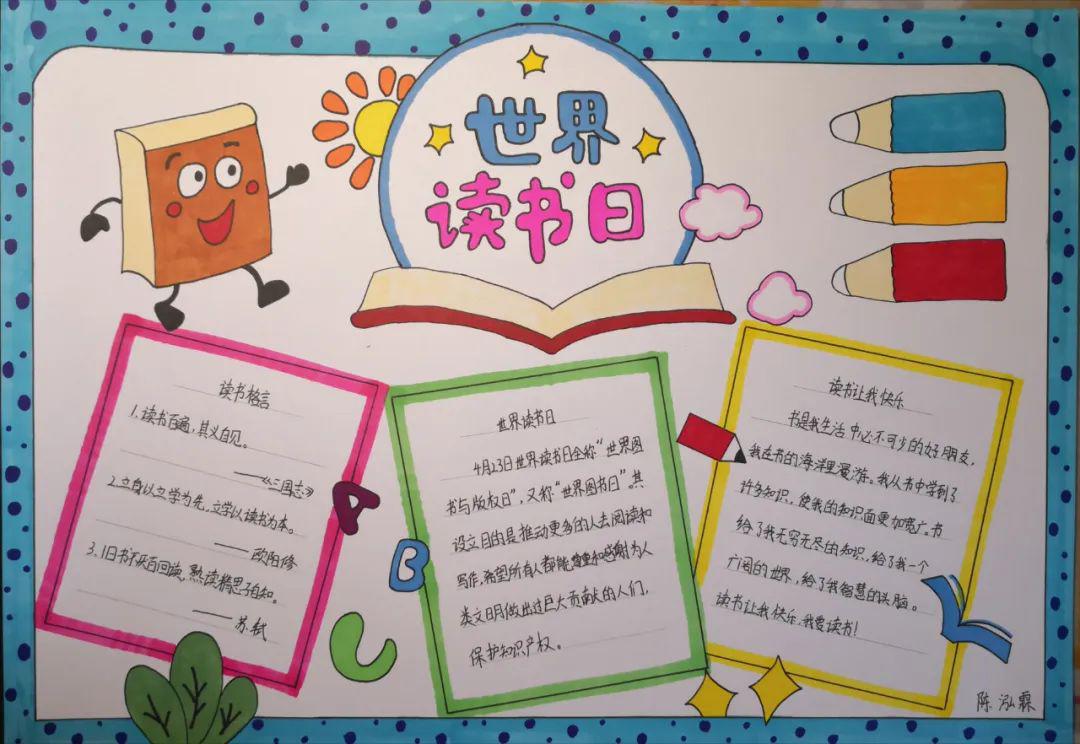 世界
读书日
读书格言
1.读书百遍，其义自见。
——《三国志》
2.立身以立学为先，立学以读书为本。
—— 欧阳修
3.旧书不厌百回读，熟读精思子自知。
—— 苏轼
A
B
C
世界读书日
4月23日世界读书日全称“世界图
书与版权日”，又称“世界图书日”。其
设立目的是推动更多的人去阅读和
写作，希望所有人都能尊重和感谢为人
类文明做出过巨大贡献的人们，
保护知识产权。
读书让我快乐
书是我生活中必不可少的好朋友，
我在书的海洋里漫游。我从书中学到了
许多知识，使我的知识面更加宽广。书
给了我无穷无尽的知识，给了我一个
广阔的世界，给了我智慧的头脑。
读书让我快乐，我爱读书！
陈泓霖